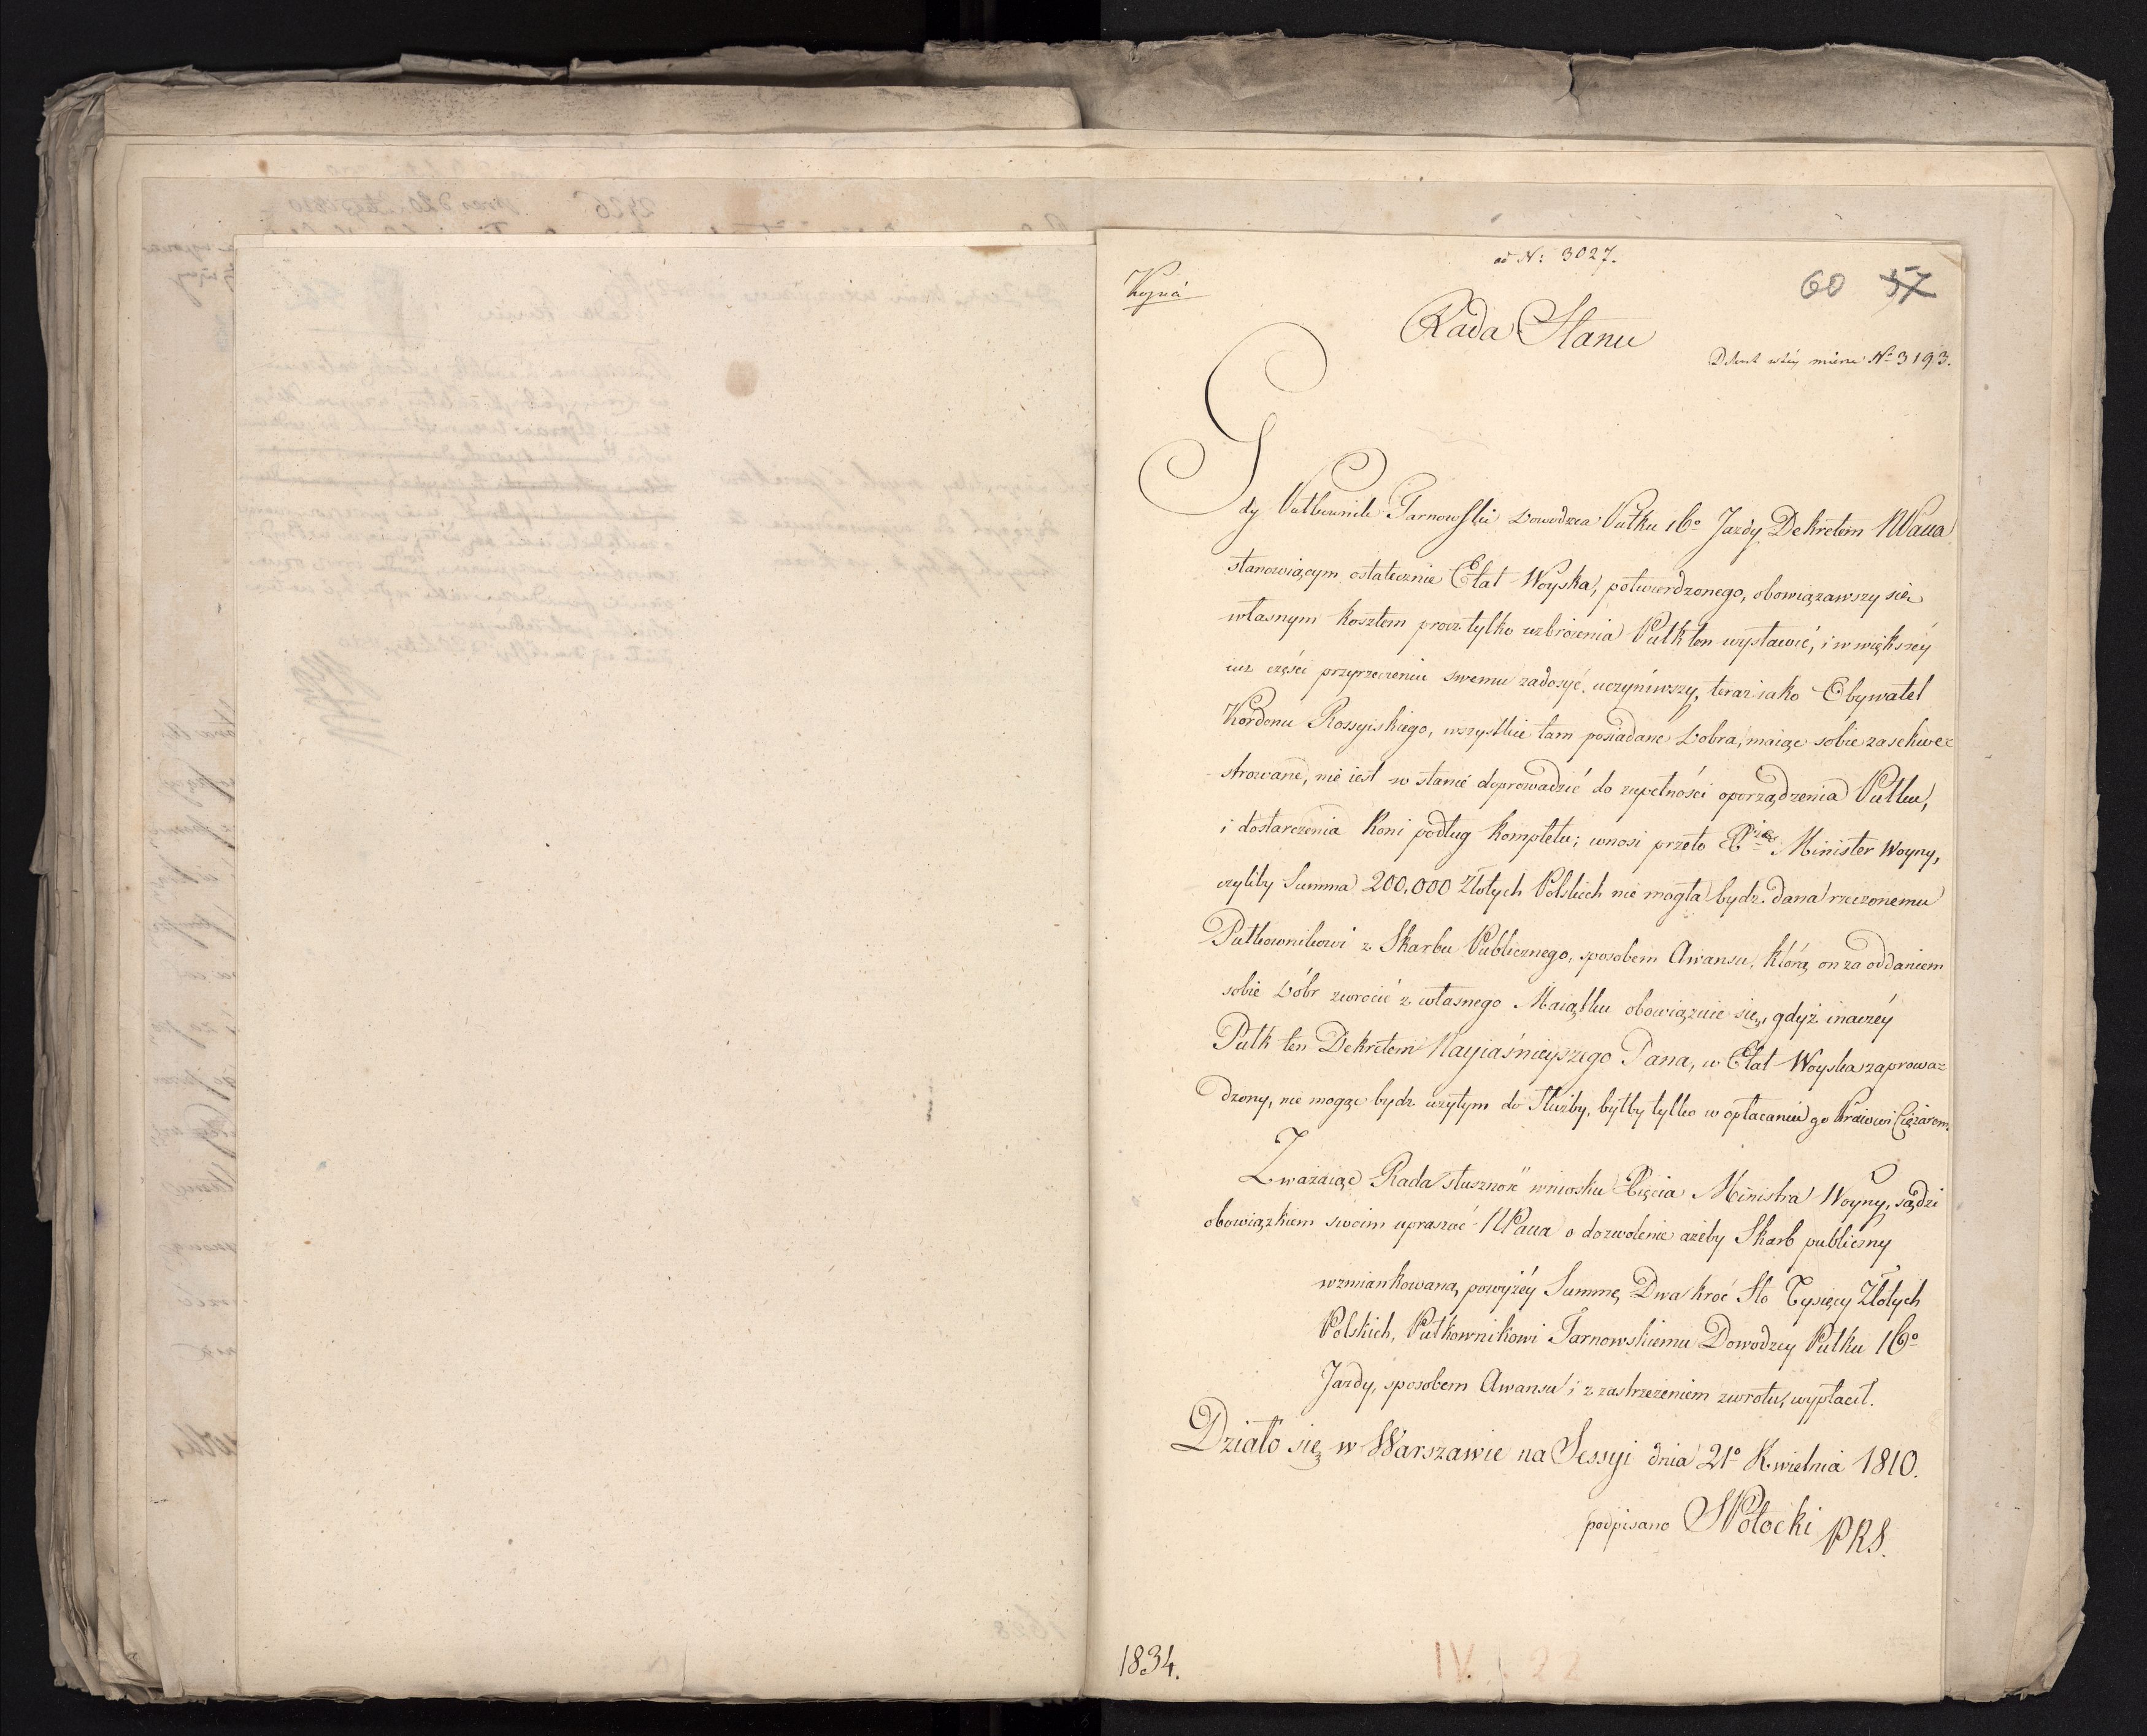 ad N: 3027.
Kopia
60 57
Rada Stanu
N° 3193.
Gdy Pułkownik Tarnowski Dowodzca Pułku 16° Jazdy Dekretem NPana
stanowiącym ostatecznie Etat Woyska, potwierdzonego, obowiązawszy się
własnym kosztem procz tylko uzbroienia Pułk ten wystawić, i w większey
iuż części przyrzeczeniu swemu zadosyć uczyniwszy, teraz iako Obywatel
Kordonu Rossyiskiego, wszystkie tam posiadane Dobra, maiąc sobie zasekwe=
strowane, nie iest w stanie doprowadzić do zupełności oporządzenia Pułku,
i dostarczenia Koni podług kompletu; wnosi przeto Minister Woyny,
czyliby Summa 200,000 Złotych Polskich nie mogła bydz dana rzeczonemu
Pułkownikowi z Skarbu Publicznego, sposobem Awansu, którą on za oddaniem
sobie Dóbr zwrocić z własnego Maiątku obowiązuie się, gdyż inaczéy
Pułk ten Dekretem Nayiaśnieyszego Pana, w Etat Woyska zaprowa=
dzony, nie mogąc bydz użytym do Służby, byłby tylko w opłacaniu go Kraiowi Ciężarem.
Zważaiąc Rada słuszność wniosku Xięcia Ministra Woyny, sądzi
obowiązkiem swoim upraszać NPana o dozwolenie ażeby Skarb publiczny
wzmiankowaną powyżéy Summę Dwakroć Sto Tysięcy Złotych
Polskich, Pułkownikowi Tarnowskiemu Dowodzcy Pułku 16°
Jazdy, sposobem Awansu i z zastrzeżeniem zwrotu, wypłacił.
Działo się w Warszawie na Sessyi dnia 21° Kwietnia 1810.
podpisano SPotocki PRS.
1834.
IV. 22